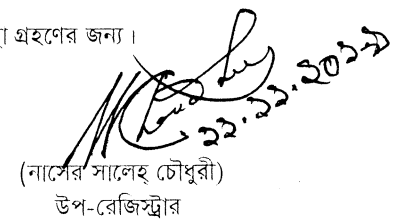 গ্রহণের জন্য।
২২.১১.২০১১
(নাসের সালেহ্ চৌধুরী)
উপ-রেজিস্ট্রার